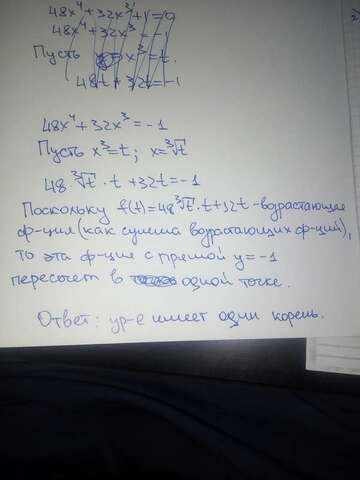 48x⁴+32x³+1=0
48x⁴+32x³=-1
Пусть x³=t.
48t+32t=-1
48x⁴+32x³=-1
Пусть x³=t; x=∛t
48·∛t·t+32t=-1
Поскольку f(t)=48∛t·t+32t-возрастающая
ф-ция (как сумма возрастающих ф-ций),
то эта ф-ция с прямой y=-1
пересечет в одной точке.
Ответ: ур-е имеет один корень.